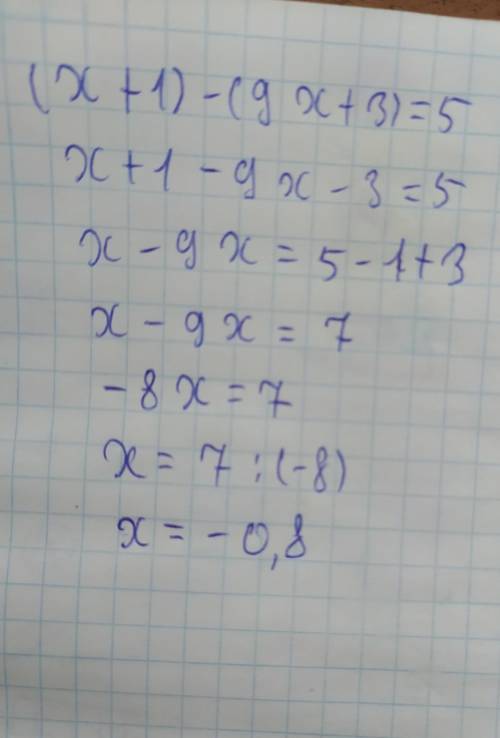 (x+1)-(9x+3)=5
x+1-9x-3=5
x-9x=5-1+3
x-9x=7
-8x=7
x=7:(-8)
x=-0,8